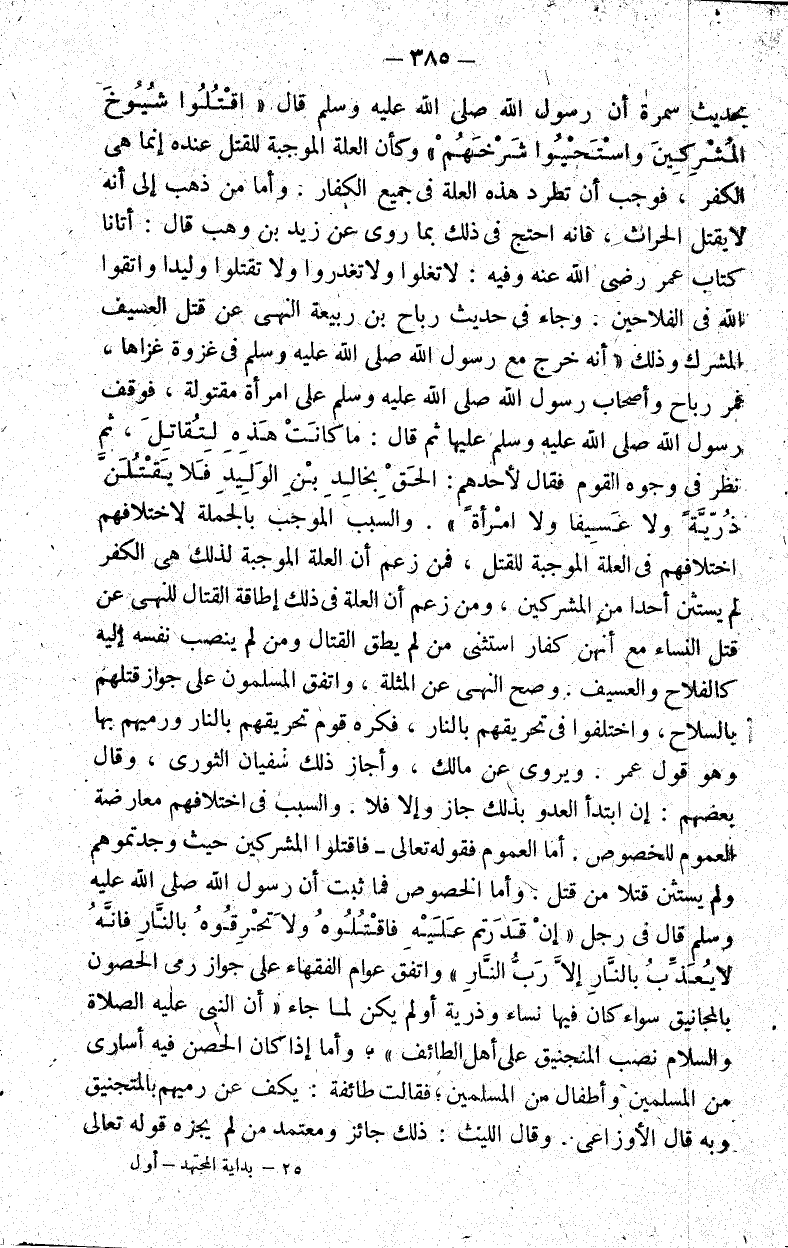 — ٣٨٥ —
بحديث سمرة أن رسول الله صلى الله عليه وسلم قال « اقْتُلُوا شُيُوخَ
المُشْرِكِينَ واسْتَحْيُوا شَرْخَهُمْ » وكأن العلة الموجبة للقتل عنده إنما هى
الكفر ، فوجب أن تطرد هذه العلة فى جميع الكفار . وأما من ذهب إلى أنه
لايقتل الحراث ، فانه احتج فى ذلك بما روى عن زيد بن وهب قال : أتانا
كتاب عمر رضى الله عنه وفيه : لاتغلوا ولاتغدروا ولا تقتلوا وليدا واتقوا
الله فى الفلاحين . وجاء فى حديث رباح بن ربيعة النهى عن قتل العسيف
المشرك وذلك « أنه خرج مع رسول الله صلى الله عليه وسلم فى غزوة غزاها ،
فمر رباح وأصحاب رسول الله صلى الله عليه وسلم على امرأة مقتولة ، فوقف
رسول الله صلى الله عليه وسلم عليها ثم قال : ماكانَتْ هَذِهِ لِتُقاتِلَ ، ثم
نظر فى وجوه القوم فقال لأحدهم : الحَقْ بِخالِدِ بْنِ الوَلِيدِ فَلا يَقْتُلَنَّ
ذُرّيَّةً ولا عَسِيفا ولا امْرأةً » . والسبب الموجب بالجملة لاختلافهم
اختلافهم فى العلة الموجبة للقتل ، فمن زعم أن العلة الموجبة لذلك هى الكفر
لم يستثن أحدا من المشركين ، ومن زعم أن العلة فى ذلك إطاقة القتال للنهى عن
قتل النساء مع أنهن كفار استثنى من لم يطق القتال ومن لم ينصب نفسه إليه
كالفلاح والعسيف . وصح النهى عن المثلة ، واتفق المسلمون على جواز قتلهم
بالسلاح ، واختلفوا فى تحريقهم بالنار ، فكره قوم تحريقهم بالنار ورميهم بها
وهو قول عمر . ويروى عن مالك ، وأجاز ذلك سفيان الثورى ، وقال
بعضهم : إن ابتدأ العدو بذلك جاز وإلا فلا . والسبب فى اختلافهم معارضة
العموم للخصوص . أما العموم فقوله تعالى ـ فاقتلوا المشركين حيث وجدتموهم
ولم يستثن قتلا من قتل . وأما الخصوص فما ثبت أن رسول الله صلى الله عليه
وسلم قال فى رجل « إنْ قَدَرتم عَلَيْهِ فاقْتُلُوهُ ولا تَحْرِقُوهُ بالنَّارِ فانَّهُ
لايُعَذّبُ بالنَّارِ إلاَّ رَبُّ النَّارِ » واتفق عوام الفقهاء على جواز رمى الحصون
بالمجانيق سواء كان فيها نساء وذرية أولم يكن لما جاء « أن النبى عليه الصلاة
والسلام نصب المنجنيق على أهل الطائف » . وأما إذا كان الحصن فيه أسارى
من المسلمين وأطفال من المسلمين ؛ فقالت طائفة : يكف عن رميهم بالمنجنيق
وبه قال الأوزاعى . وقال الليث : ذلك جائز ومعتمد من لم يجزه قوله تعالى
٢٥ — بداية المجتهد — أول